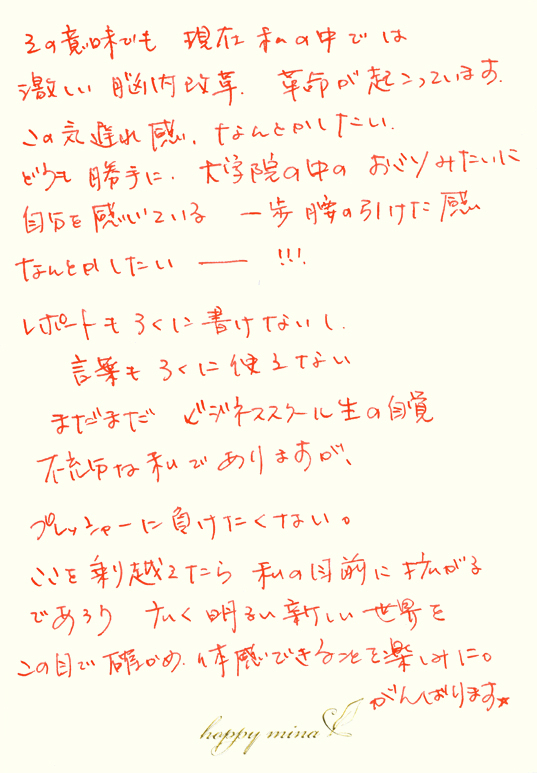 その意味でも 現在 私の中では
激しい 脳内改革. 革命が起こっています.
この気遅れ感、なんとかしたい.
どうも 勝手に. 大学院の中の おべソみたいに
自分を感じている 一歩 腰の引けた感
なんとかしたい ―― !!!
レポートも ろくに書けないし.
言葉も ろくに使えない
まだまだ ビジネススクール生の自覚
不充分な私でありますが、
プレッシャーに負けたくない。
ここを乗り越えたら 私の目前に拡がる
であろう 広く明るい新しい世界を
この目で確かめ、体感できることを楽しみに。
がんばります☆
happy mina